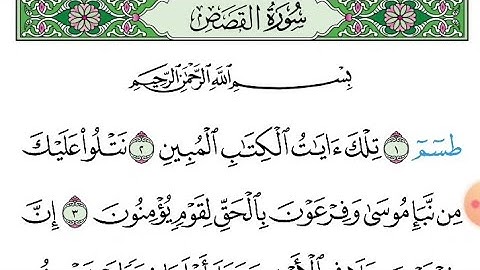 سُورَةُ القَصَصِ
بِسْمِ اللَّهِ الرَّحْمَٰنِ الرَّحِيمِ
طسٓمٓ ١ تِلْكَ ءَايَٰتُ ٱلْكِتَٰبِ ٱلْمُبِينِ ٢ نَتْلُوا۟ عَلَيْكَ
مِن نَّبَإِ مُوسَىٰ وَفِرْعَوْنَ بِٱلْحَقِّ لِقَوْمٍ يُؤْمِنُونَ ٣ إِنَّ